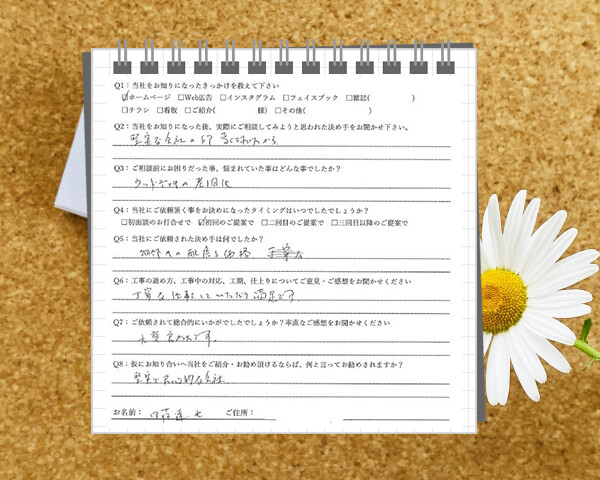 Q1：当社をお知りになったきっかけを教えて下さい
☑ホームページ □Web広告 □インスタグラム □フェイスブック □雑誌( )
□チラシ □看板 □ご紹介( 様) □その他( )
Q2：当社をお知りになった後、実際にご相談してみようと思われた決め手をお聞かせ下さい。
堅実な会社の印
Q3：ご相談前にお困りだった事、悩まれていた事はどんな事でしたか？
ウッドデッキの老朽化
Q4：当社にご依頼頂く事をお決めになったタイミングはいつでしたでしょうか？
□初面談のお打合せで ☑初回のご提案で □二回目のご提案で □三回目以降のご提案で
Q5：当社にご依頼された決め手は何でしたか？
価格
Q6：工事の進め方、工事中の対応、工期、仕上りについてご意見・ご感想をお聞かせください
丁寧な仕事をしていただき満足です。
Q7：ご依頼されて総合的にいかがでしたでしょうか？率直なご感想をお聞かせください
大変良かったです。
Q8：仮にお知り合いへ当社をご紹介・お勧め頂けるならば、何と言ってお勧めされますか？
堅実で良心的な会社
お名前： ご住所：